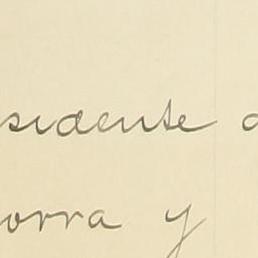 sidente
orra y